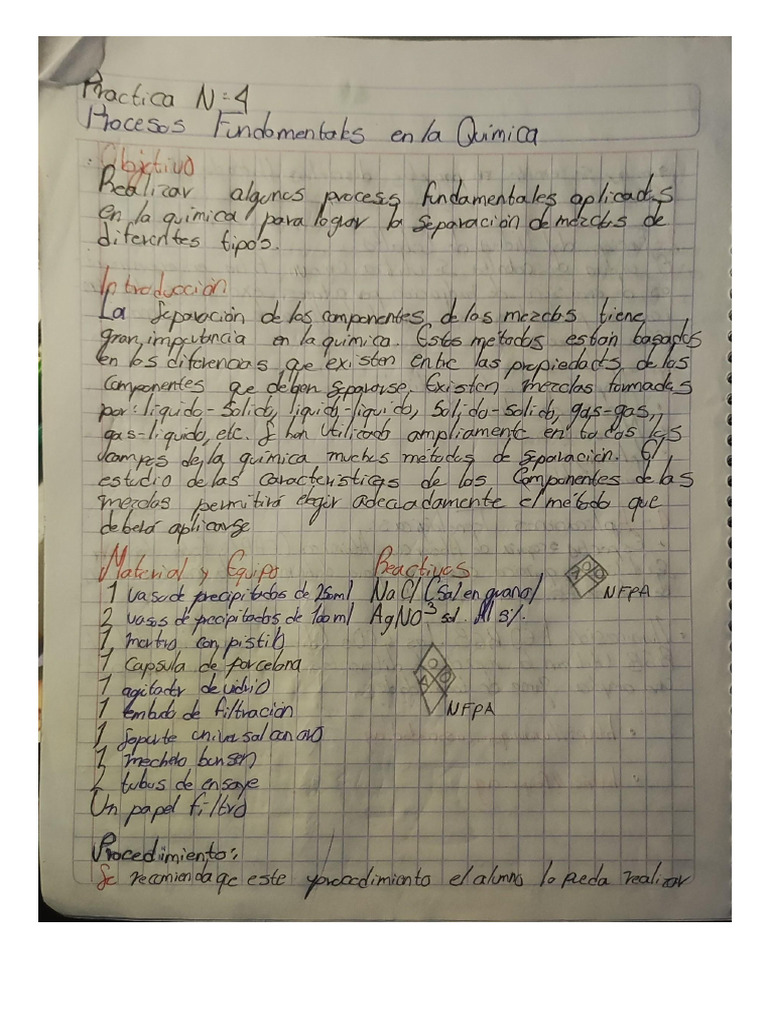 Practica N=4
Procesos Fundamentales en la Quimica
Objetivo
Realizar algunos procesos fundamentales aplicados
en la quimica para lograr la separación de mezclas de
diferentes tipos.
Introducción
La Separación de los componentes de las mezclas tiene
gran importancia en la química. Estos métodos estan basados
en las diferencias que existen entre las propiedades de los
Componentes que deben separarse. Existen mezclas formadas
por: liquido-solido, liquido-liquido, solido-solido, gas-gas,
gas-liquido, etc. Se han utilizado ampliamente en todos los
campos de la química muchos métodos de separacion. El
estudio de las caracteristicas de los Componentes de las
mezclas permitirá elegir adecuadamente el método que
deberá aplicarse
Material y Equipo Reactivos
1 vaso de precipitados de 250ml NaCl (Sal en grano)
NFPA
2 vasos de precipitados de 100ml AgNO3 sol. Al 5%
1 mortero con pistilo
1 Capsula de porcelana
1 agitador de vidrio
1 embudo de filtración
NFPA
1 Soporte universal con aro
1 mechero bunsen
2 tubos de ensaye
Un papel filtro
Procedimiento:
Se recomienda qe este procedimiento el alumno lo pueda realizar